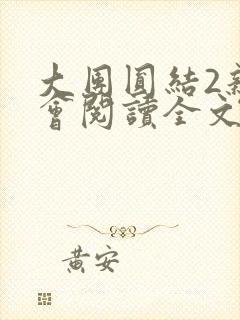 大團圓結2新
會閱讀全文
黃安